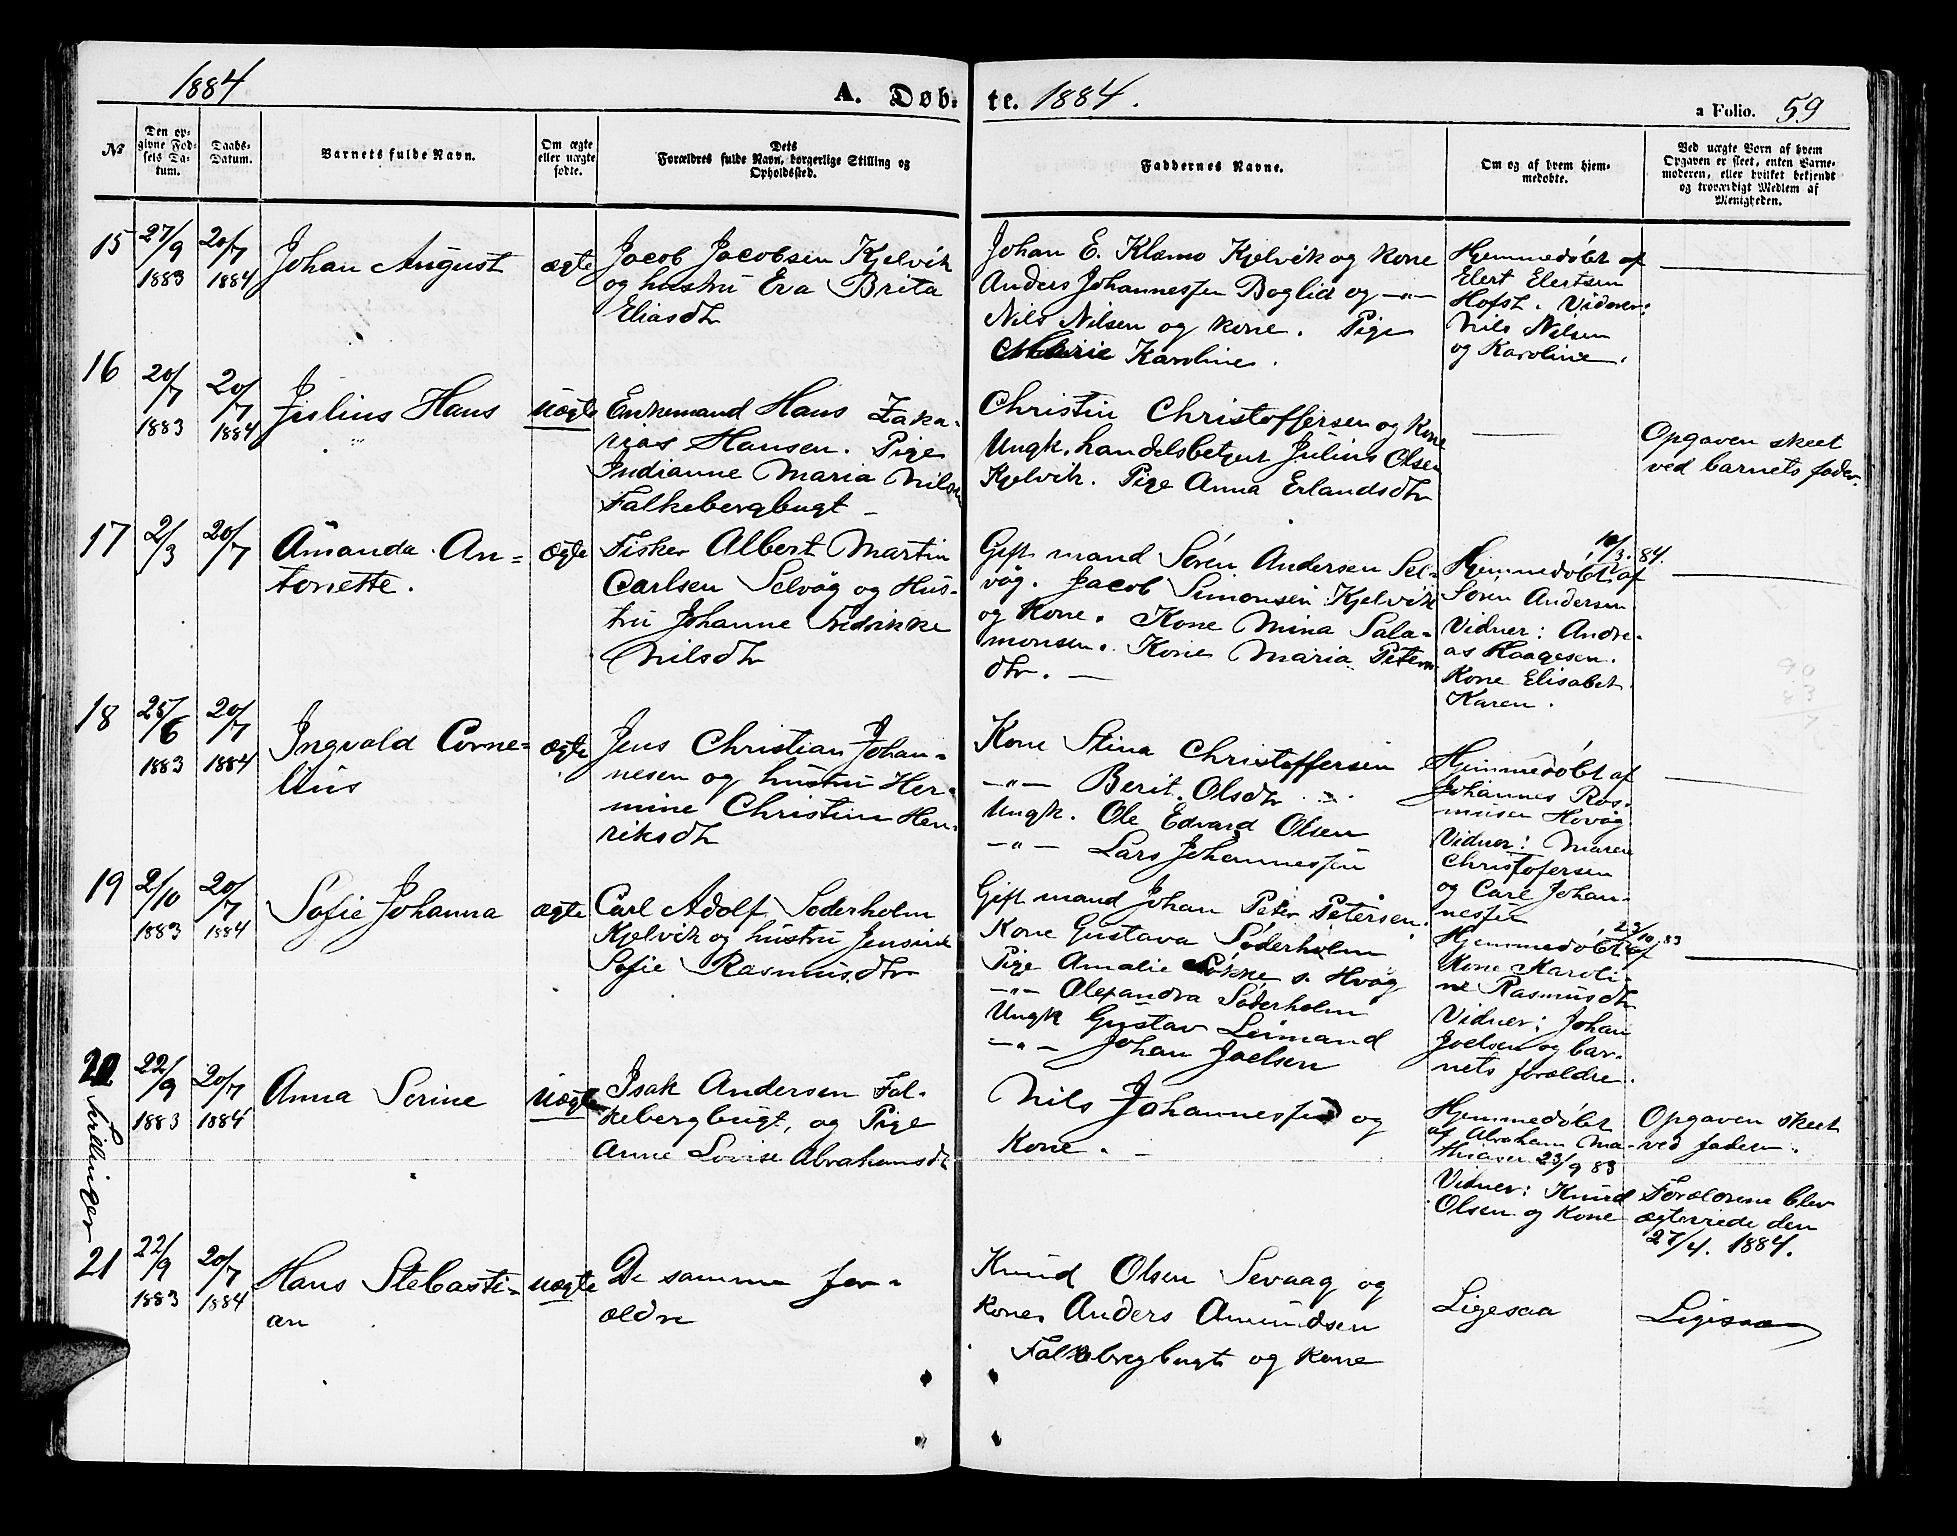 1884
A. Døb-
te. 1884.
a Folio. 59
№
Den op-
givne Fød-
sels Da-
tum.
Daabs-
Datum.
Barnets fulde Navn.
Om ægte
eller uægte
fødte.
Dets
Forældres fulde Navn, borgerlige Stilling og
Opholdssted.
Faddernes Navne.
Om og af hvem hjem-
medøbte.
Ved uægte Børn af hvem
Opgaven er skeet, enten Barne-
moderen, eller hvilket bekjendt
og troværdigt Medlem af
Menigheden.
15
27/9
1883
20/7
1884
Johan August
ægte
Jacob Jacobsen Kjelvik
og hustru Eva Brita
Eliasdtr
Johan E. Klæmo Kjelvik og kone
Anders Johannessen Boglid og —"—
Nils Nilsen og kone. Pige
Marie Karoline.
Hjemmedøbt af
Elert Elertsen
Hofst. Vidner:
Nils Nilsen
og Karoline.
16
20/7
1883
20/7
1884
Julius Hans
uægte
Enkemand Hans Zaka-
rias Hansen. Pige
Indianne Maria Nilsen
Falkebergbugt –
Christin Christoffersen og kone
Ungk. handelsbetjent Julius Olsen
Kjelvik. Pige Anna Erlandsdtr
Opgaven skeet
ved barnets fader.
17
2/3
20/7
Amanda An-
tonette.
ægte
Fisker Albert Martin
Carlsen Selvåg og Hus-
tru Johanne Fredrikke
Nilsdtr
Gift mand Søren Andersen Sel-
våg. Jacob Simonsen Kjelvik
og kone. Kone Mina Sala-
monsen. Kone Maria Peters-
dtr. —
10/3. 84.
Hjemmedøbt af
Søren Andersen
Vidner: Andre-
as Haagesen.
Kone Elisabet
Karen.
18
25/6
1883
20/7
1884
Ingvald Corne-
lius
ægte
Jens Christian Johan-
nesen og hustru Her-
mine Christine Hen-
riksdtr
Kone Stina Christoffersen
—"— Berit Olsdtr
Ungk. Ole Edvard Olsen
—"— Lars Johannessen
Hjemmedøbt af
Johannes Ras-
musen Hovåg
Vidner: Maren
Christofersen
og Carl Johan-
nessen
19
2/10
1883
20/7
1884
Sofie Johanna
ægte
Carl Adolf Søderholm
Kjelvik og hustru Jensine
Sofie Rasmusdtr
Gift mand Johan Peter Petersen.
Kone Gustava Søderholm
Pige Amalie Søkke s. Hvåg
—"— Alexandra Søderholm
Ungk Gustav Leimand
—"— Johan Joelsen
23/10. 83
Hjemmedøbt af
Kone Karoli-
ne Rasmusdtr
Vidner: Johan
Joelsen og bar-
nets forældre.
20
22/9
1883
20/7
1884
Anna Serine
uægte
Isak Andersen Fal-
kebergbugt, og Pige
Anne Lovise Abrahamsdtr
Nils Johannessen og
Kone. –
Hjemmedøbt
af Abraham Ma-
thiasen 23/9 83
Vidner: Knud
Olsen og kone
Opgaven skeet
ved faderen.
Forældrene blev
ægteviede den
27/4. 1884.
Tvillinger
21
22/9
1883
20/7
1884
Hans Stebasti-
an
uægte
De samme for-
ældre
Knud Olsen Sevaag og
kone, Anders Amundsen
Falkebergbugt og kone
Ligesaa
Ligesaa